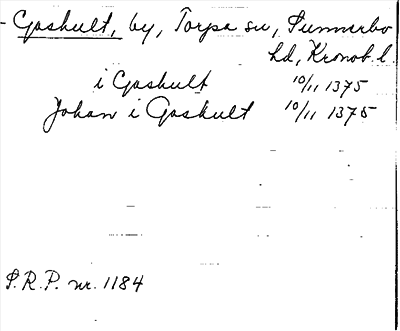 - Goskult, by, Torpa sn, Sunnerbo
hd, Kronob. l.
i Goskult 10/11 1375
Johan i Goskult 10/11 1375
S.R.P. nr. 1184